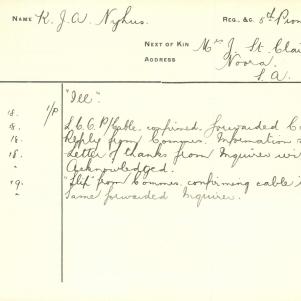 NAME K. J. A. Nyhus.
REG. &C. 5th Pion
NEXT OF KIN Mrs J. St Clai
ADDRESS Noora.
S. A.
"Ill".
18. 1/P
18. S.C.C. P/Cable. confirmed. forwarded C
18. Reply from Commrs. Information
18. Letter of thanks from Inquirer wi
" Acknowledged.
19. "Slip" from Commrs, confirming cable
" Same forwarded Inquirer.